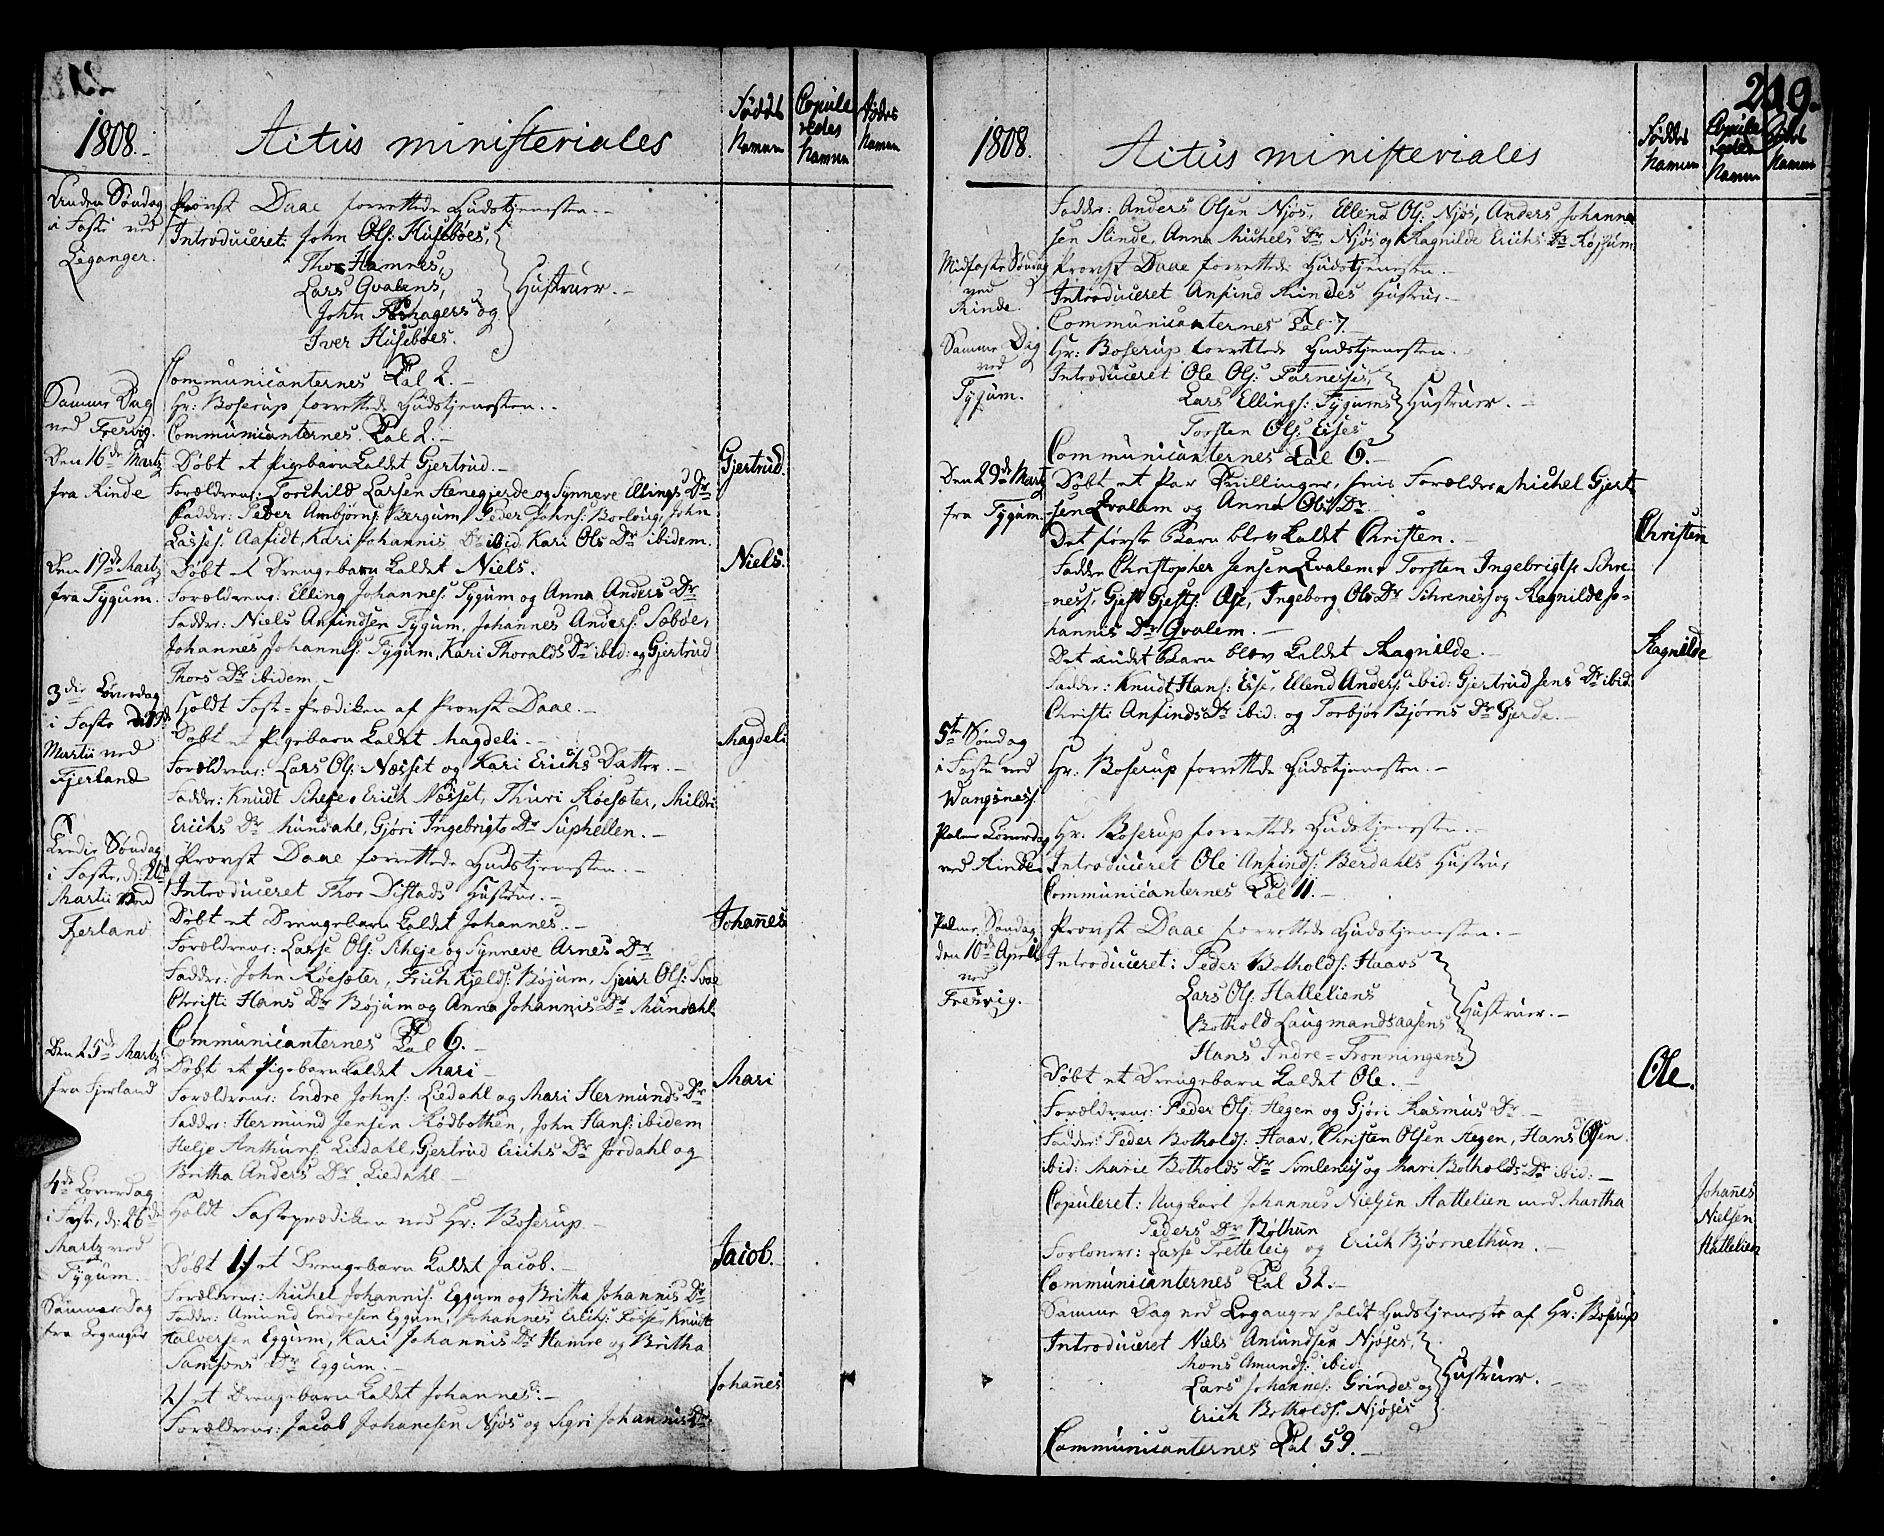 1808.
Actus ministeriales
Føddes Namn
Copuleredes Namn
Dødes Namn
Anden Søndag i Faste ved Leganger.
Provst Daae forrettede Gudstjenesten.
Introduceret: John Ols: Husebøes,
Thor Hamnes,
Lars Qvalens,
John og
Iver Husebøes.
Hustruer.
Communicanternes Tal 2.
Samme Dag ved Fresvig.
Hr: Boserup forrettede Gudstjenesten.
Communicanternes Tal 2.
Den 16de Martz fra Rinde
Døbt et Pigebarn kaldet Gjertrud.
Gjertrud.
Forældrene: Torchild Larsen Henegjerde og Synneve Ellings Dr
Fadder: Peder Ambjørns: Bergum, Peder Johns: Borlaug, John
Lasses: Aafedt, Kari Johannis Dr ibid. Kari Ols Dr ibidem.
Den 19de Martz fra Tygum.
Døbt et Drengebarn kaldet Niels.
Niels.
Forældrene: Elling Johannes: Tygum og Anna Anders Dr
Fadder: Niels Anfindsen Tygum, Johannes Anders: Sæbøe,
Johannes Johannes: Tygum, Kari Thoralds Dr ibid: og Gjertrud
Thors Dr ibidem.
3die Løverdag i Faste d: 19de Martii ved Fjerland
Holdt Faste-Prædiken af Provst Daae.
Døbt et Pigebarn kaldet Magdeli.
Magdeli
Forældrene: Lars Ols: Næsset og Kari Erichs Datter.
Fadder: Knudt Scheje, Erich Næsset, Thuri Røesæter, Mildri
Erichs Dr Mundahl, Gjøri Ingebrigts Dr Suphellen.
Tredie Søndag i Faste, d: 20de Martii ved Fjerland
Provst Daae forrettede Gudstjenesten.
Introduceret Thor Distads Hustrue.
Døbt et Drengebarn kaldet Johannes.
Johañes
Forældrene: Lasse Ols: Scheje og Synneve Arnes Dr
Fadder: John Røesæter, Erich Kjelds: Bøjum, Ols:
Christi Hans Dr Bøjum og Anna Johannis Dr Mundahl
Communicanternes Tal 6.
Den 25de Martz fra Fjerland
Døbt et Pigebarn kaldet Mari
Mari
Forældrene: Endre Johns: Liedahl og Mari Hermunds Dr
Fadder: Hermund Jensen Rødbothen, John Hans: ibidem
Helje Anthuns: Liedahl, Gjertrud Erichs Dr Jordahl og
Britha Anders Dr Liedahl.
4de Løverdag i Faste, d: 26de Martz ved Tygum.
Holdt Fasteprædiken ved Hr: Boserup
Samme Dag fra Leganger
Døbt 1/ et Drengebarn kaldet Jacob.
Jacob.
Forældrene: Michel Johannis: Eggum og Britha Johannis Dr
Fadder: Amund Endresen Eggum, Johannes Erichs: Fosse, Knudt
Halversen Eggum, Kari Johannis Dr Hamre og Britha
Samsons Dr Eggum.
2/ et Drengebarn kaldet Johannes.
Johañes
Forældrene: Jacob Johannesen Njøs og Sigri Johannis Dr
1808.
Actus ministeriales
Føddes Namn
Copuleredes Namn
Dødes Namn
Fadder: Anders Olsen Njøs, Ellend Ols: Njøs, Anders Johanne
sen Slinde, Anna Michels Dr Njøs og Ragnilde Erichs Dr Røjsum
Midfaste Søndag ved Rinde.
Provst Daae forrettede Gudstjenesten.
Introduceret Anfind Rindes Hustrue.
Communicanternes Tal 7.
Samme Dag ved Tygum.
Hr: Boserup forrettede Gudstjenesten.
Introduceret Ole Ols: Farnesses,
Lars Ellings: Tygums
Torsten Ols: Eises
Hustruer.
Communicanternes Tal 6.
Den 29de Martz fra Tygum.
Døbt et Par Tvillinger, hvis Forældre Michel Gjert
sen Qvalem og Anna Ols Dr.
Det første Barn blev kaldet Christen.
Christen
Fadder Christopher Jensen Qvalem, Torsten Ingebrigts: Schre
ness, Gjest Gjests: Ese, Ingeborg Ols Dr Schreness og Ragnilde Jo-
hannis Dr Qvalem.
Det andet Barn blev kaldet Ragnilde.
Ragnilde
Fadder: Knudt Hans: Eise, Ellend Anders: ibid: Gjertrud Jens Dr ibid:
Christi Anfinds Dr ibid: og Torbjør Bjørns Dr Gjerde.
5te Søndag i Faste ved Wangsness.
Hr: Boserup forrettede Gudstjenesten.
Palme Løverdag ved Rinde
Hr: Boserup forrettede Gudstjenesten.
Introduceret Ole Anfinds: Berdahls Hustrue
Communicanternes Tal 11.
Palme Søndag den 10de Aprilis ved Fresvig.
Provst Daae forrettede Gudstjenesten.
Introduceret: Peder Botholds: Haavs
Lars Ols: Hatleliens
Bothold Laugmandsaasens
Hans Indre-Frønningens
Hustruer.
Døbt et Drengebarn kaldet Ole.
Ole.
Forældrene: Peder Ols: Hegen og Gjøri Rasmus Dr
Fadder: Peder Botholds: Haav, Christen Olsen Hegen, Hans Olsen
ibid: Marie Botholds Dr Simlenes og Mari Botholds Dr ibid:
Copuleret: Ungkarl Johannes Nielsen Hatlelien med Martha
Peders Dr Bøthun
Johañes Nielsen Hatlelien
Forlovere: Lasse Tretteteig og Erich Bjørnethun.
Communicanternes Tal 32.
Samme Dag ved Leganger holdt Gudstjeneste af Hr: Boserup
Introduceret Niels Amundsen Njøses,
Mons Amunds: ibid
Lars Johannes: Grindes og
Erich Botholds: Njøses
Hustruer.
Communicanternes Tal 59.